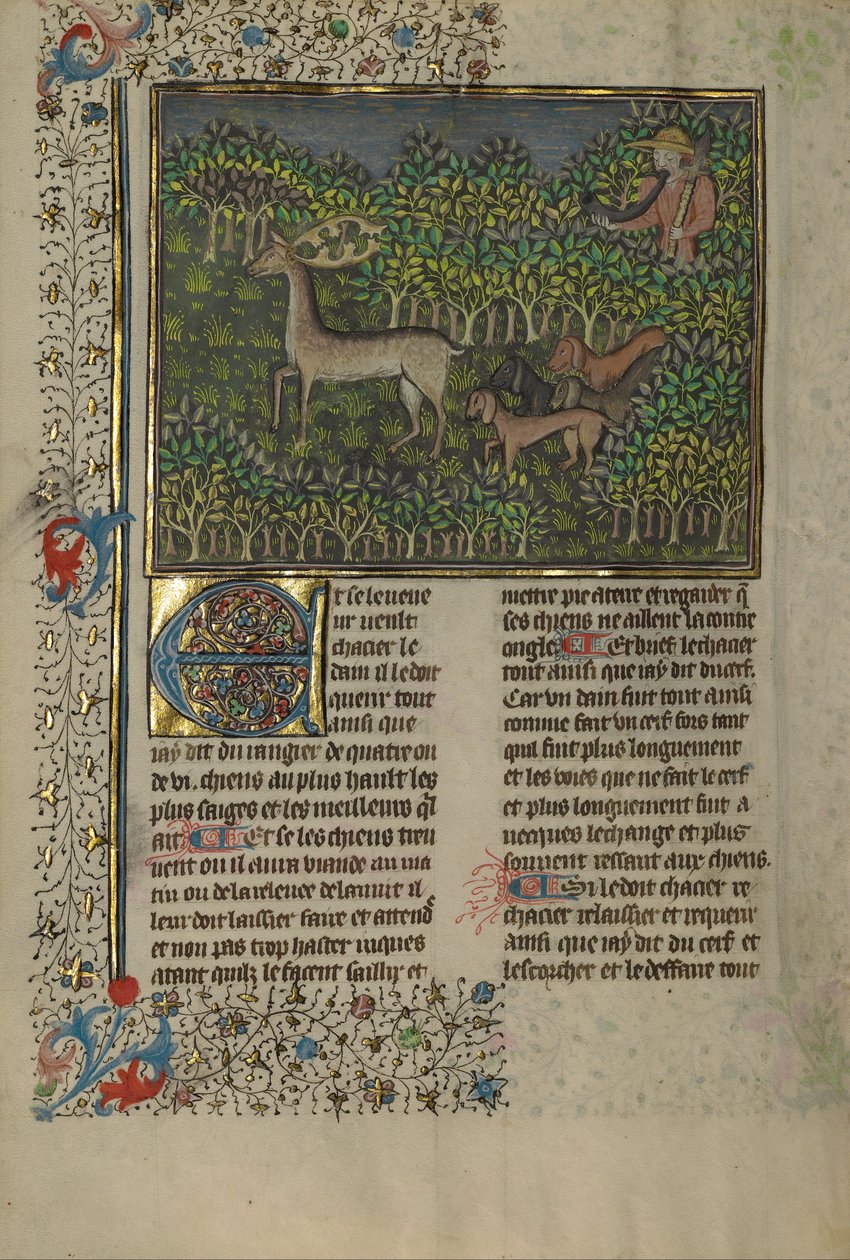 Et se le veneur
ur veult
chacier le
dain il le doit
querir tout
ainsi que
iay dit du rangier de quatre ou
de vi. chiens au plus hault les
plus saiges et les meilleurs ql
ait Et se les chiens treu
uent ou il aura viande au ma
tin ou de la releuee de la nuit il
leur doit laissier faire et attend
et non pas trop haster iucques
atant quilz le facent saillir et
mettre pie a terre et regarder q̄
ses chiens ne aillent la contre
ongle Et brief le chacier
tout ainsi que iay dit du cerf.
Car vn dain fuit tout ainsi
comme fait vn cerf fors tant
quil fuit plus longuement
et les voies que ne fait le cerf
et plus longuement fuit a
uecques le change et plus
souuent ressaut aux chiens.
Si le doit chacier re
chacier relaissier et requerir
ainsi que iay dit du cerf et
lescorcher et le deffaire tout